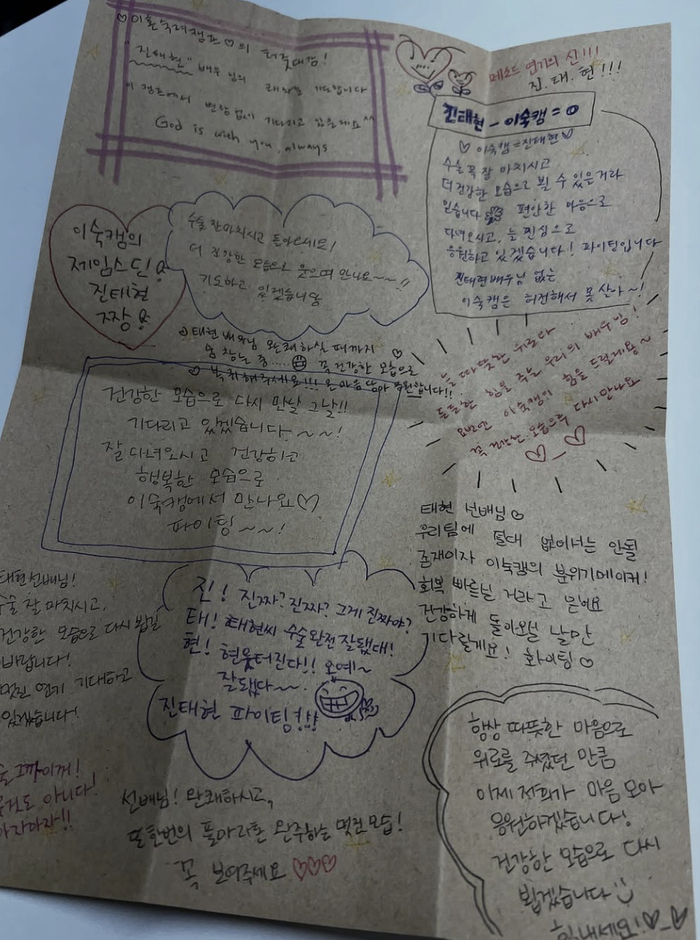 ♡이혼숙려캠프♡의 최고대감!
"진태현" 배우님의 쾌차를 기도합니다
이 캠프에서 변함없이 기다리고 있을게요^^
God is with you, always
메소드 연기의 신!!!
진.태.현!!!
진태현 - 이숙캠 = 0
♡이숙캠=진태현♡
수술 꼭 잘 마치시고
더 건강한 모습으로 뵐 수 있을거라
믿습니다 편안한 마음으로
다녀오시고, 늘 진심으로
응원하고 있겠습니다! 파이팅입니다
진태현배우님 없는
이숙캠은 허전해서 못 살아~!
이숙캠의
제임스딘!
진태현
짱!
수술 잘 마치시고 돌아오세요!
더 건강한 모습으로 웃으며 만나요~~!!
기도하고 있겠습니당
태현 배우님 완쾌하실 때까지
엄청 눈물 중... 꼭 건강한 모습으로
복귀해주세요!!! 온 마음 담아 응원합니다!!
늘 따뜻한 위로다
든든한 힘을 주는 우리의 배우님!
요번엔 이숙캠이 힘을 드릴게용~
꼭 건강한 모습으로 다시 만나요
건강한 모습으로 다시 만날 그날!!
기다리고 있겠습니다~~!
잘 다녀오시고 건강하고
행복한 모습으로
이숙캠에서 만나요♡
파이팅~~!
태현 선배님♡
우리팀에 절대 없어서는 안될
존재이자 이숙캠의 분위기메이커!
회복 빠르실 거라고 믿어요
건강하게 돌아오실 날만
기다릴게요! 화이팅♡
태현선배님!
수술 잘 마치시고,
건강한 모습으로 다시 뵙길
바랍니다!
멋진 연기 기대하고
있겠습니다!
진! 진짜? 진짜? 그게 진짜야?
태! 태현씨 수술 완전 잘됐대!
현! 현웃터진다!! 오예~
잘됐다~~
진태현 파이팅!!!
술 그까이꺼!
것도 아니다!
아자아자!!
선배님! 완쾌하시고,
또 한번의 풀마라톤 완주하는 멋진 모습!
꼭 보여주세요 ♡♡♡
항상 따뜻한 마음으로
위로를 주셨던 만큼
이제 저희가 마음 모아
응원하겠습니다!
건강한 모습으로 다시
뵙겠습니다 :)
힘내세요!